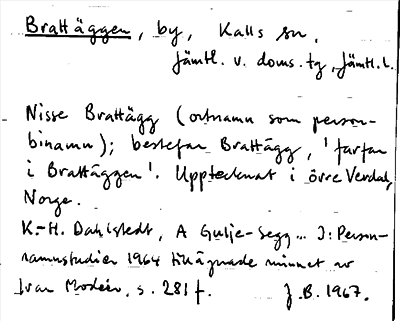 Brattäggen, by, Kalls sn,
Jämtl. v. doms. tg, Jämtl. l.
Nisse Brattägg (ortnamn som person-
binamn); bestefar Brattägg, 'farfar
i Brattäggen'. Upptecknat i övre Verdal,
Norge.
K.-H. Dahlstedt, A Gulje-Segg... I: Person-
namnstudier 1964 tillägnade minnet av
Ivar Modéer, s. 281 f. J.B. 1967.